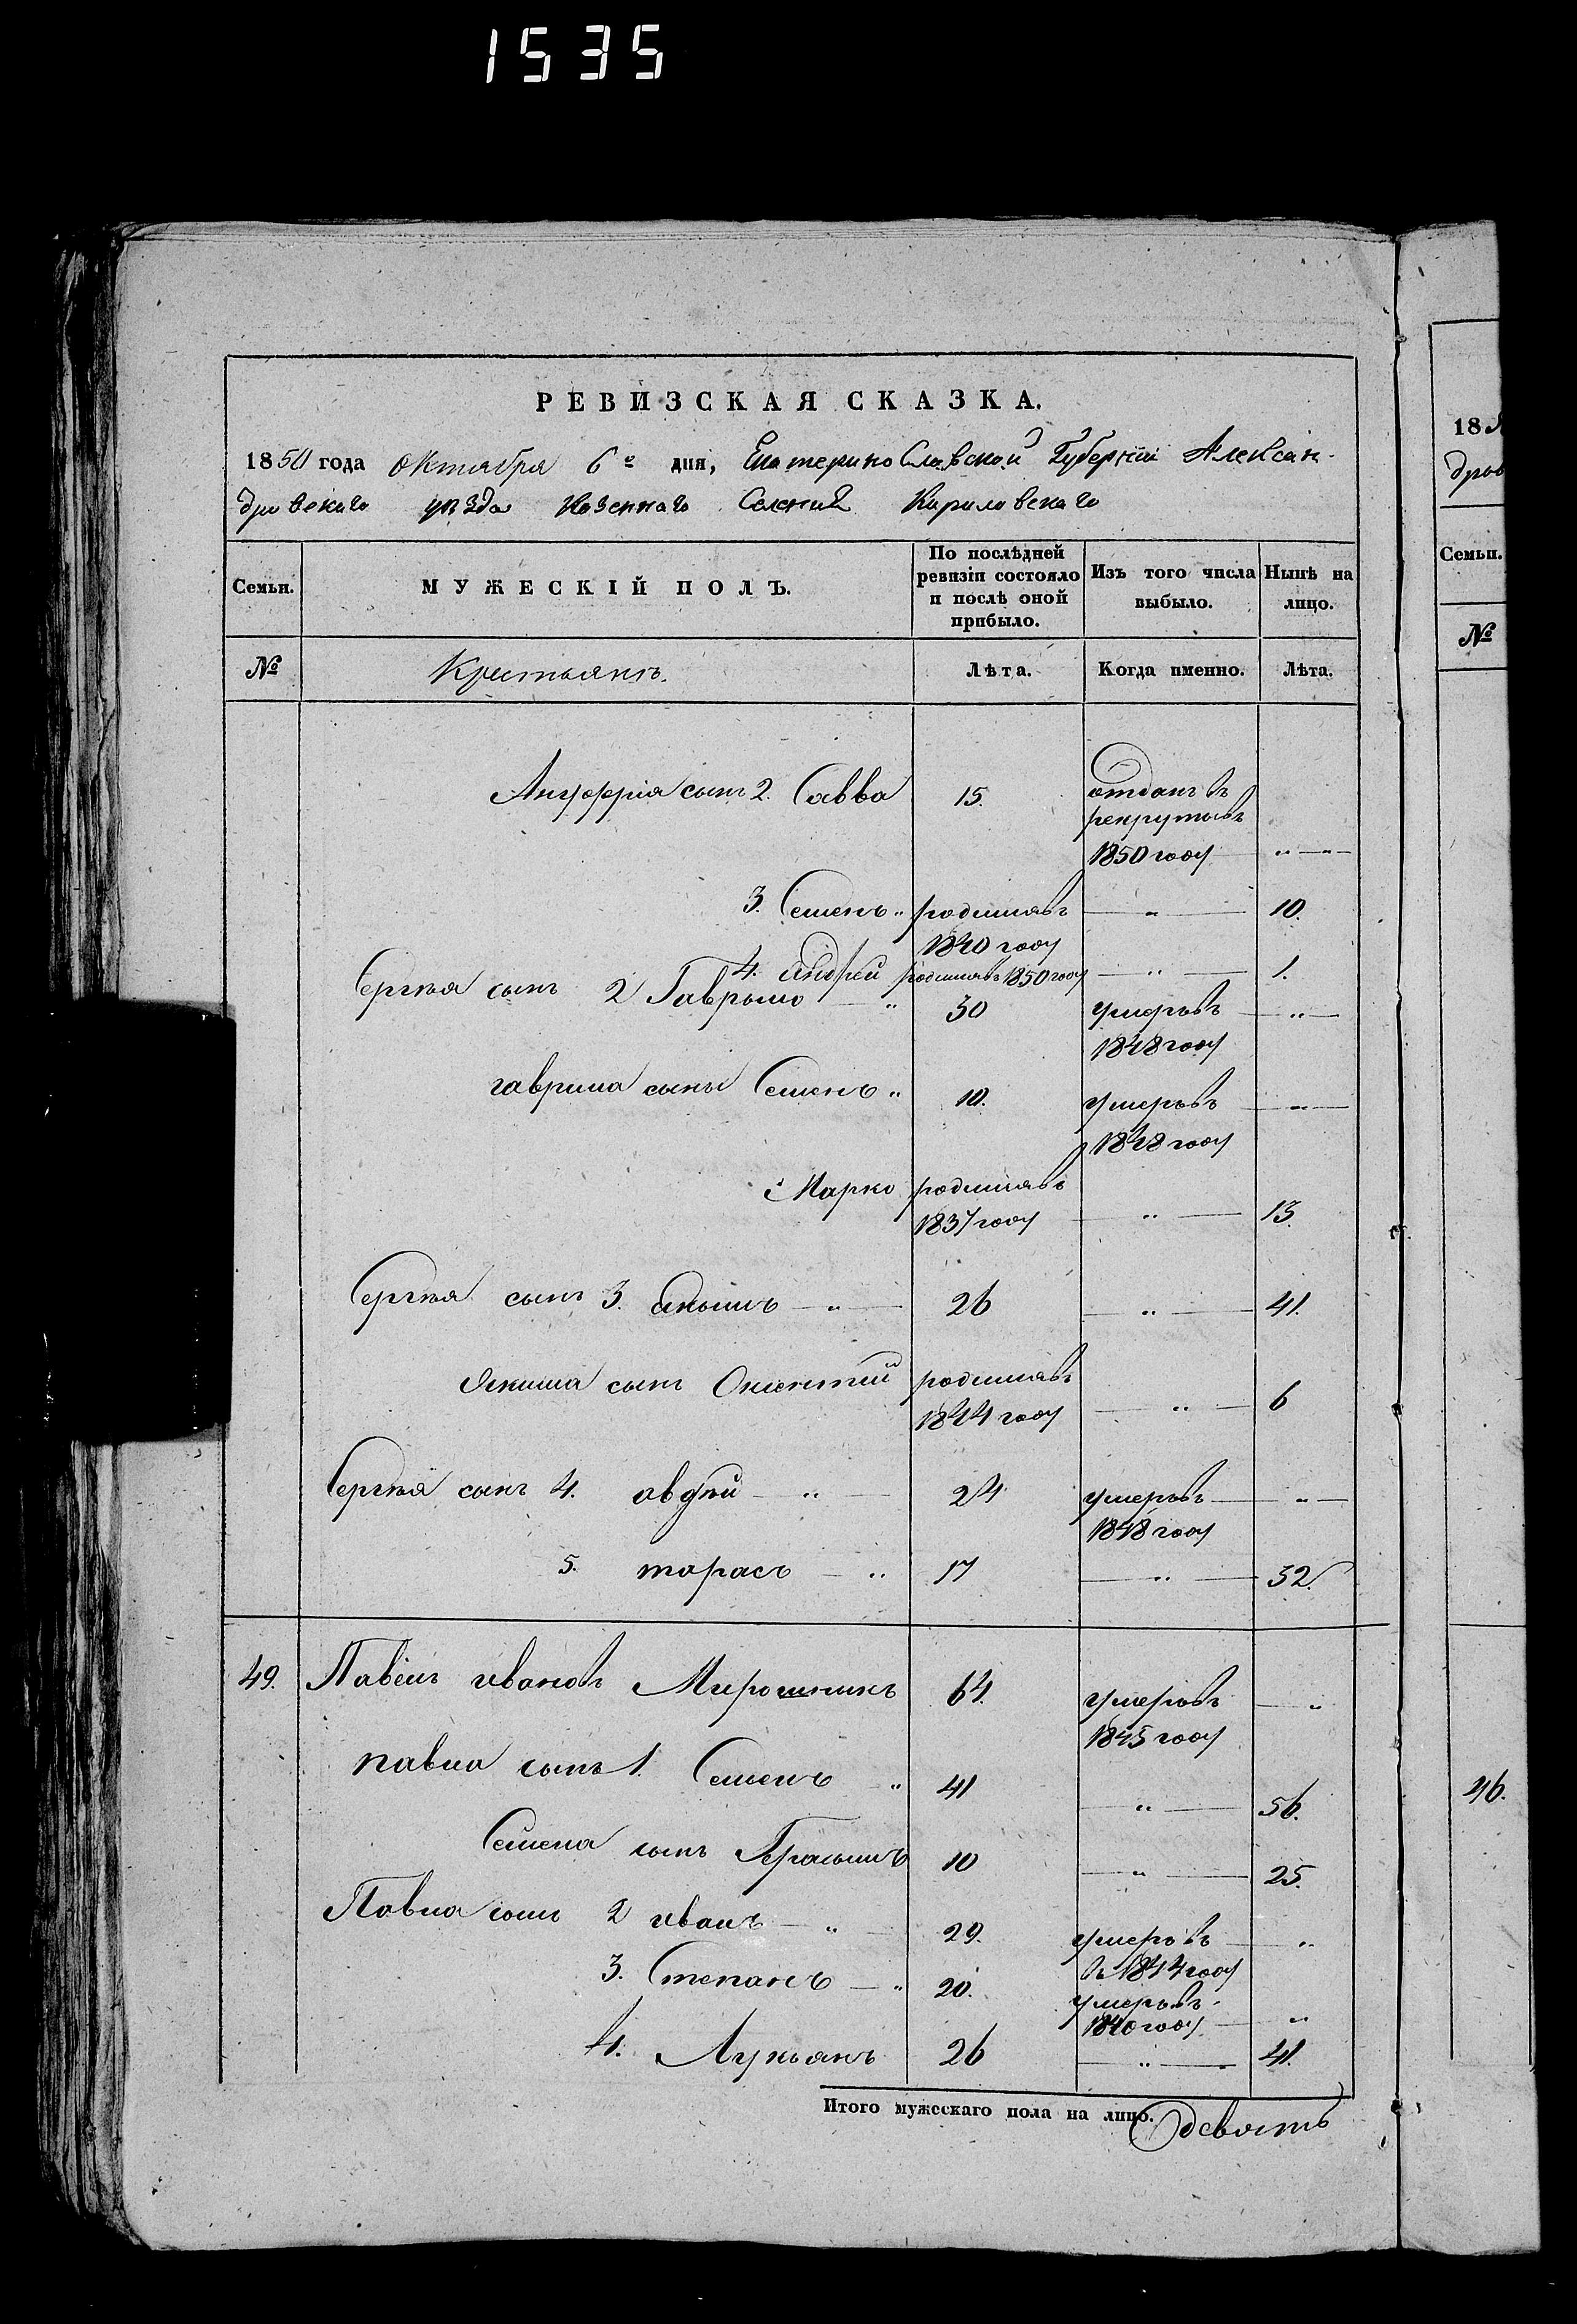 1535
РЕВИЗСКАЯ СКАЗКА.
1850 года октября 6го дня, Екатеринославской Губерніи Алексан-
дровскаго уѣзда Казеннаго Селенія Кириловскаго
Семьи. МУЖЕСКІЙ ПОЛЪ. По послѣдней ревизіи состояло и послѣ оной прибыло. Изъ того числа выбыло. Нынѣ на лицо.
№ Крестьянъ. Лѣта. Когда именно. Лѣта.
Ануфрія сынъ 2. Савва 15. отданъ въ
рекруты въ
1850 году „ — „
3. Семенъ „ родился въ „ 10.
1840 году
4. андрей родился въ 1850 году „ 1.
Сергѣя сынъ 2 Гаврыло „ 30 умеръ въ „
1848 году
гаврила сынъ Семенъ „ 10. умеръ въ „
1848 году
Марко родился въ
1837 году „ 13.
Сергѣя сынъ 3. акымъ „ 26 „ 41.
Якима сынъ Оксентій родился въ
1844 году „ 6
Сергѣя сынъ 4. авдѣй „ 24 умеръ въ „
1848 году
5. тарасъ „ 17 „ 32.
49. Павелъ ивановъ Мирошникъ 64. умеръ въ „
1845 году
павла сынъ 1. Семенъ „ 41 „ 56.
Семена сынъ Герасымъ 10 „ 25.
Павла сынъ 2 иванъ „ 29. умеръ въ „
въ 1844 году
3. Степанъ „ 20. умеръ въ
1840 году „
4. Лукьянъ 26 „ 41.
Итого мужескаго пола на лицо. девять
18
дров
Семьи.
№
46.